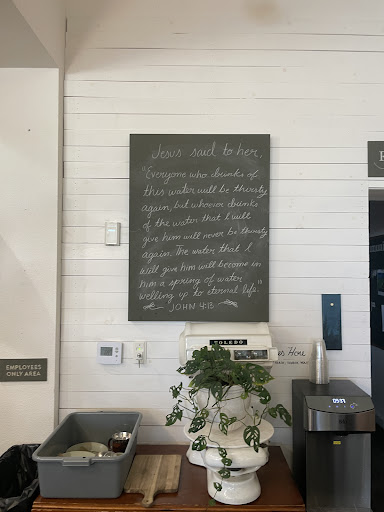 Jesus said to her,
"Everyone who drinks of
this water will be thirsty
again, but whoever drinks
of the water that I will
give him will never be thirsty
again. The water that I
will give him will become in
him a spring of water
welling up to eternal life."
JOHN 4:13
TOLEDO
EMPLOYEES
ONLY AREA